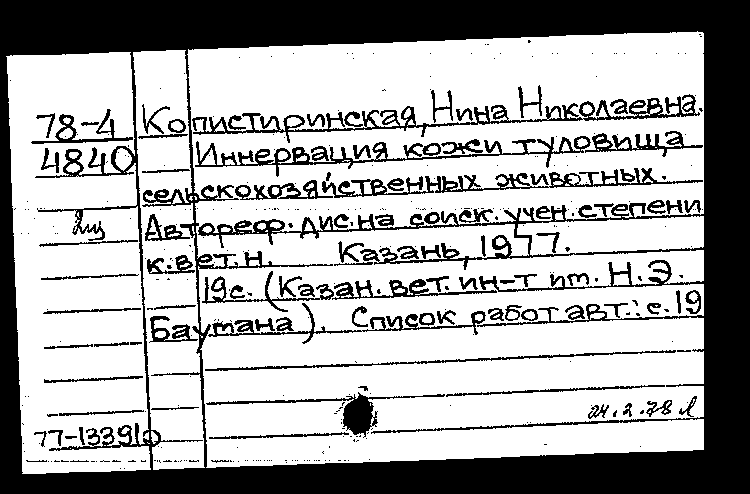 78-4 Копистиринская, Нина Николаевна.
4840 Иннервация кожи туловища
сельскохозяйственных животных.
2чз Автореф. дис. на соиск. учен. степени
к. вет. н. Казань, 1977.
19с. (Казан. вет. ин-т им. Н.Э.
Баумана). Список работ авт.: с. 19
24.2.78 л
77-13391о